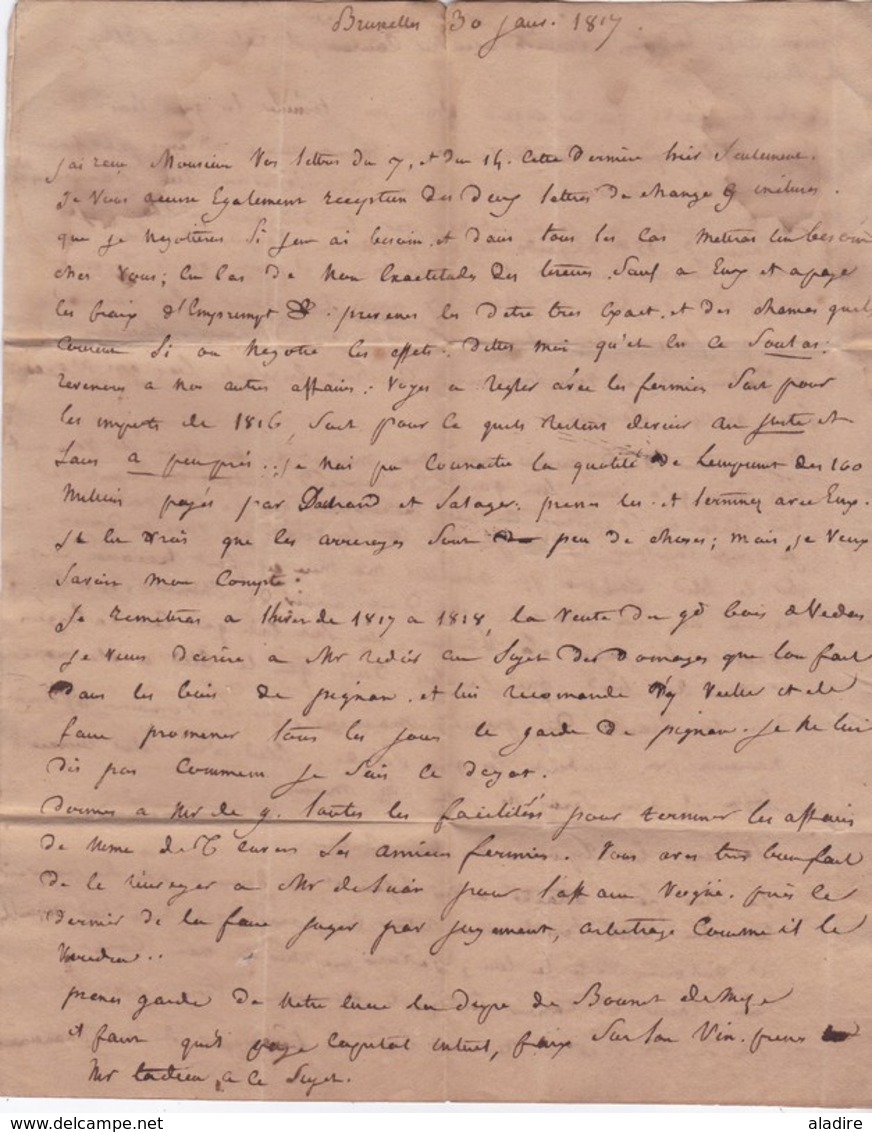 Bruxelles 30 janv. 1817.
j'ai reçu Monsieur Vos lettres du 7, et du 14. cette Derniere hier Seulement.
Je Vous accuse Egalement reception des deux lettres de change incluses.
que je negotieres Si j'en ai besoin, et dans tous les cas metres besoin
ches Vous; En Cas de Non Exactitude des tireurs, Sauf a Eux et a paye
les fraix d'Emprempt &. prevenes les d'etre tres Exact, et des chames quels
Courent Si on Negotie les effets. Dittes moi qu'est les ce
revenons a nos autres affaires: Voyes a regler avec les fermiers Soit pour
les impots de 1816, Soit pour Ce quels restent devoir au juste et
Sans a peu près.. je N'ai pu Connaitre la quotité de Lemprunt des 100
Millions payés par et Salager: prenes les et terminez avec Eux.
il Est Vrais que les arrerages Sont peu de choses; mais je Veux
Savoir mon Compte.
Je remettras a l'hiver de 1817 a 1818, la Vente du gd bois
je Viens d'ecrire a Mr au Sujet des Domages que l'on fait
Dans les bois de pignan. et lui recomande d'y Veiller et de
faire promener tous les jours le garde de pignan. je Ne lui
dis pas Comment je Sais ce degat.
donnes a Mr de g. toutes les facilités pour terminer les affaires
de Meme Envers Ses anciens fermiers. Vous aves tres bien fait
de le renvoyer a Mr pour l'affaire Vergné. pries ce
dernier de la faire juger par jugement, arbitrage Comme il le
Voudra..
prenes garde de Notre Bounet de Meze
et faire qu'il paye Capital interet, fraix Sur Son Vin.
Mr a ce Sujet.
aladire